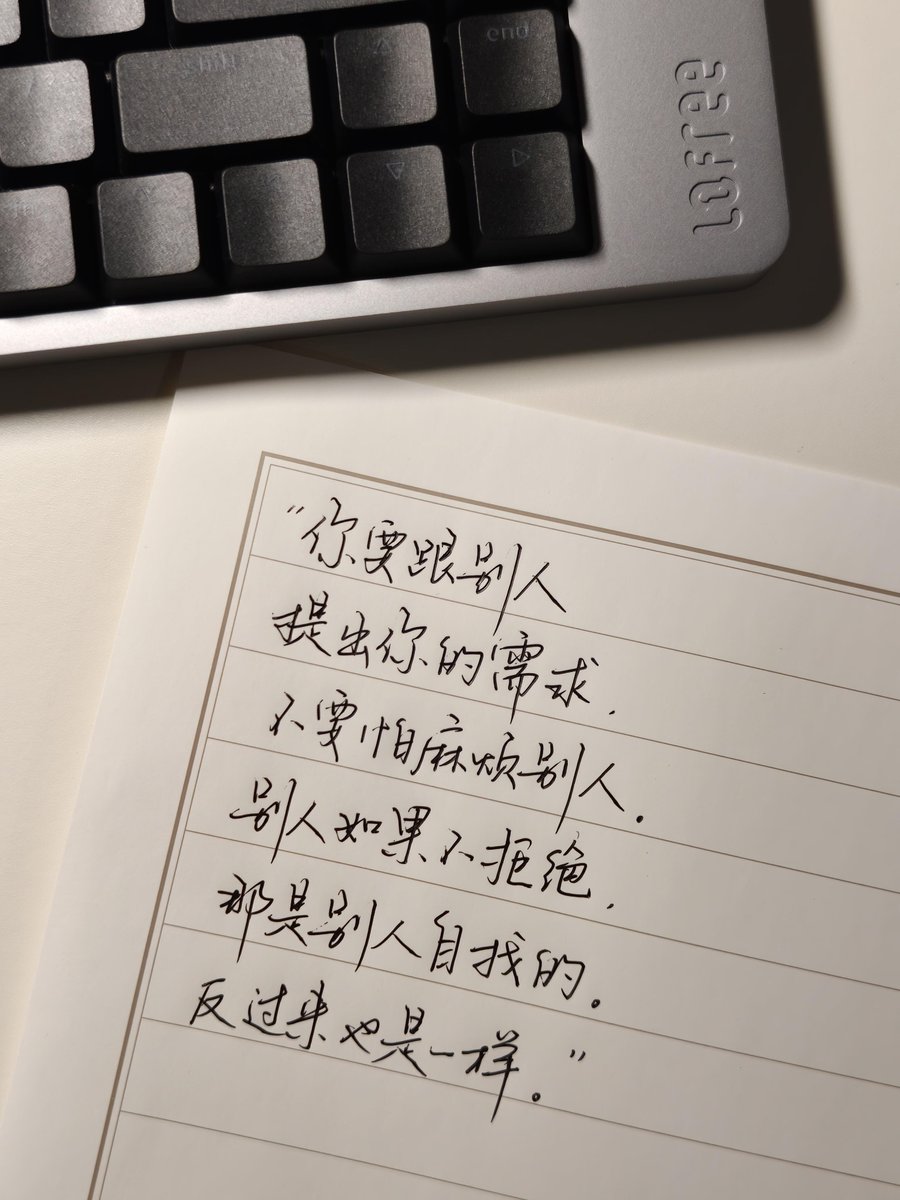 shift
end
LOFREE
“你要跟别人
提出你的需求.
不要怕麻烦别人.
别人如果不拒绝.
那是别人自找的.
反过来也是一样.”